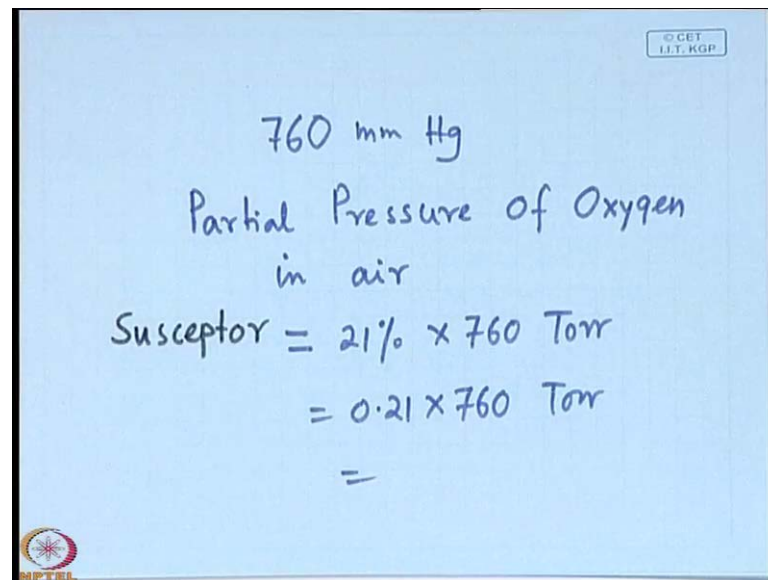 © CET
I.I.T. KGP
760 mm Hg
Partial Pressure of Oxygen
in air
Susceptor = 21% × 760 Torr
= 0.21 × 760 Torr
=
NPTEL